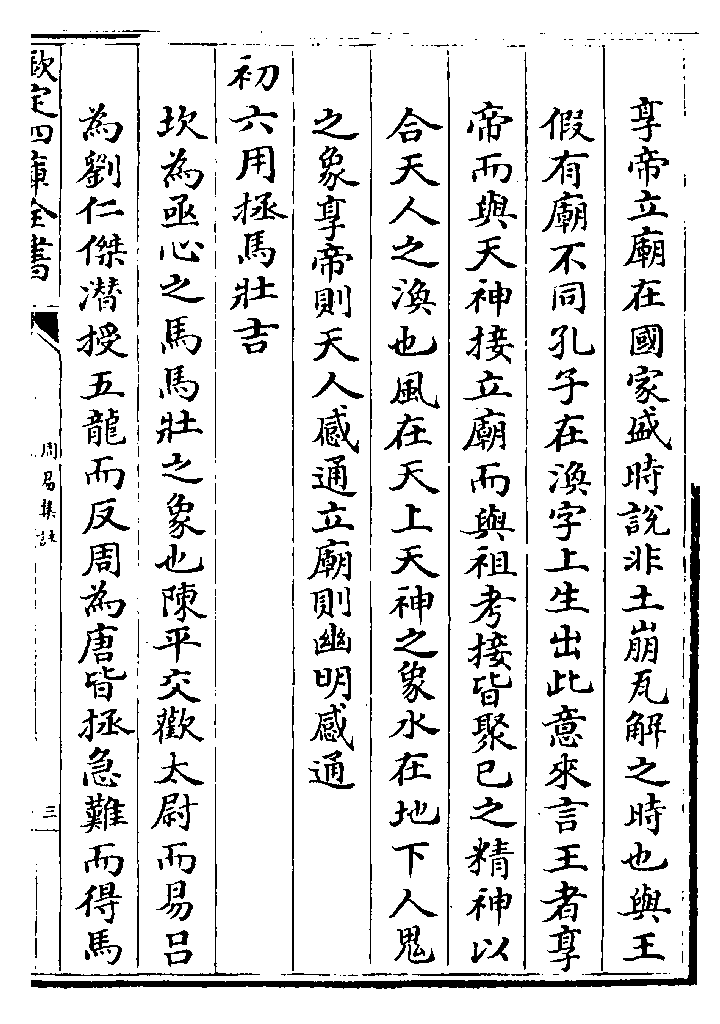 享帝立廟在國家盛時說非土崩瓦解之時也與王
假有廟不同孔子在渙字上生出此意來言王者享
帝而與天神接立廟而與祖考接皆聚已之精神以
合天人之渙也風在天上天神之象水在地下人鬼
之象享帝則天人感通立廟則幽明感通
初六用拯馬壯吉
坎為亟心之馬馬壯之象也陳平交歡太尉而易呂
為劉仁傑潛授五龍而反周為唐皆拯急難而得馬
欽定四庫全書
周易集註
三